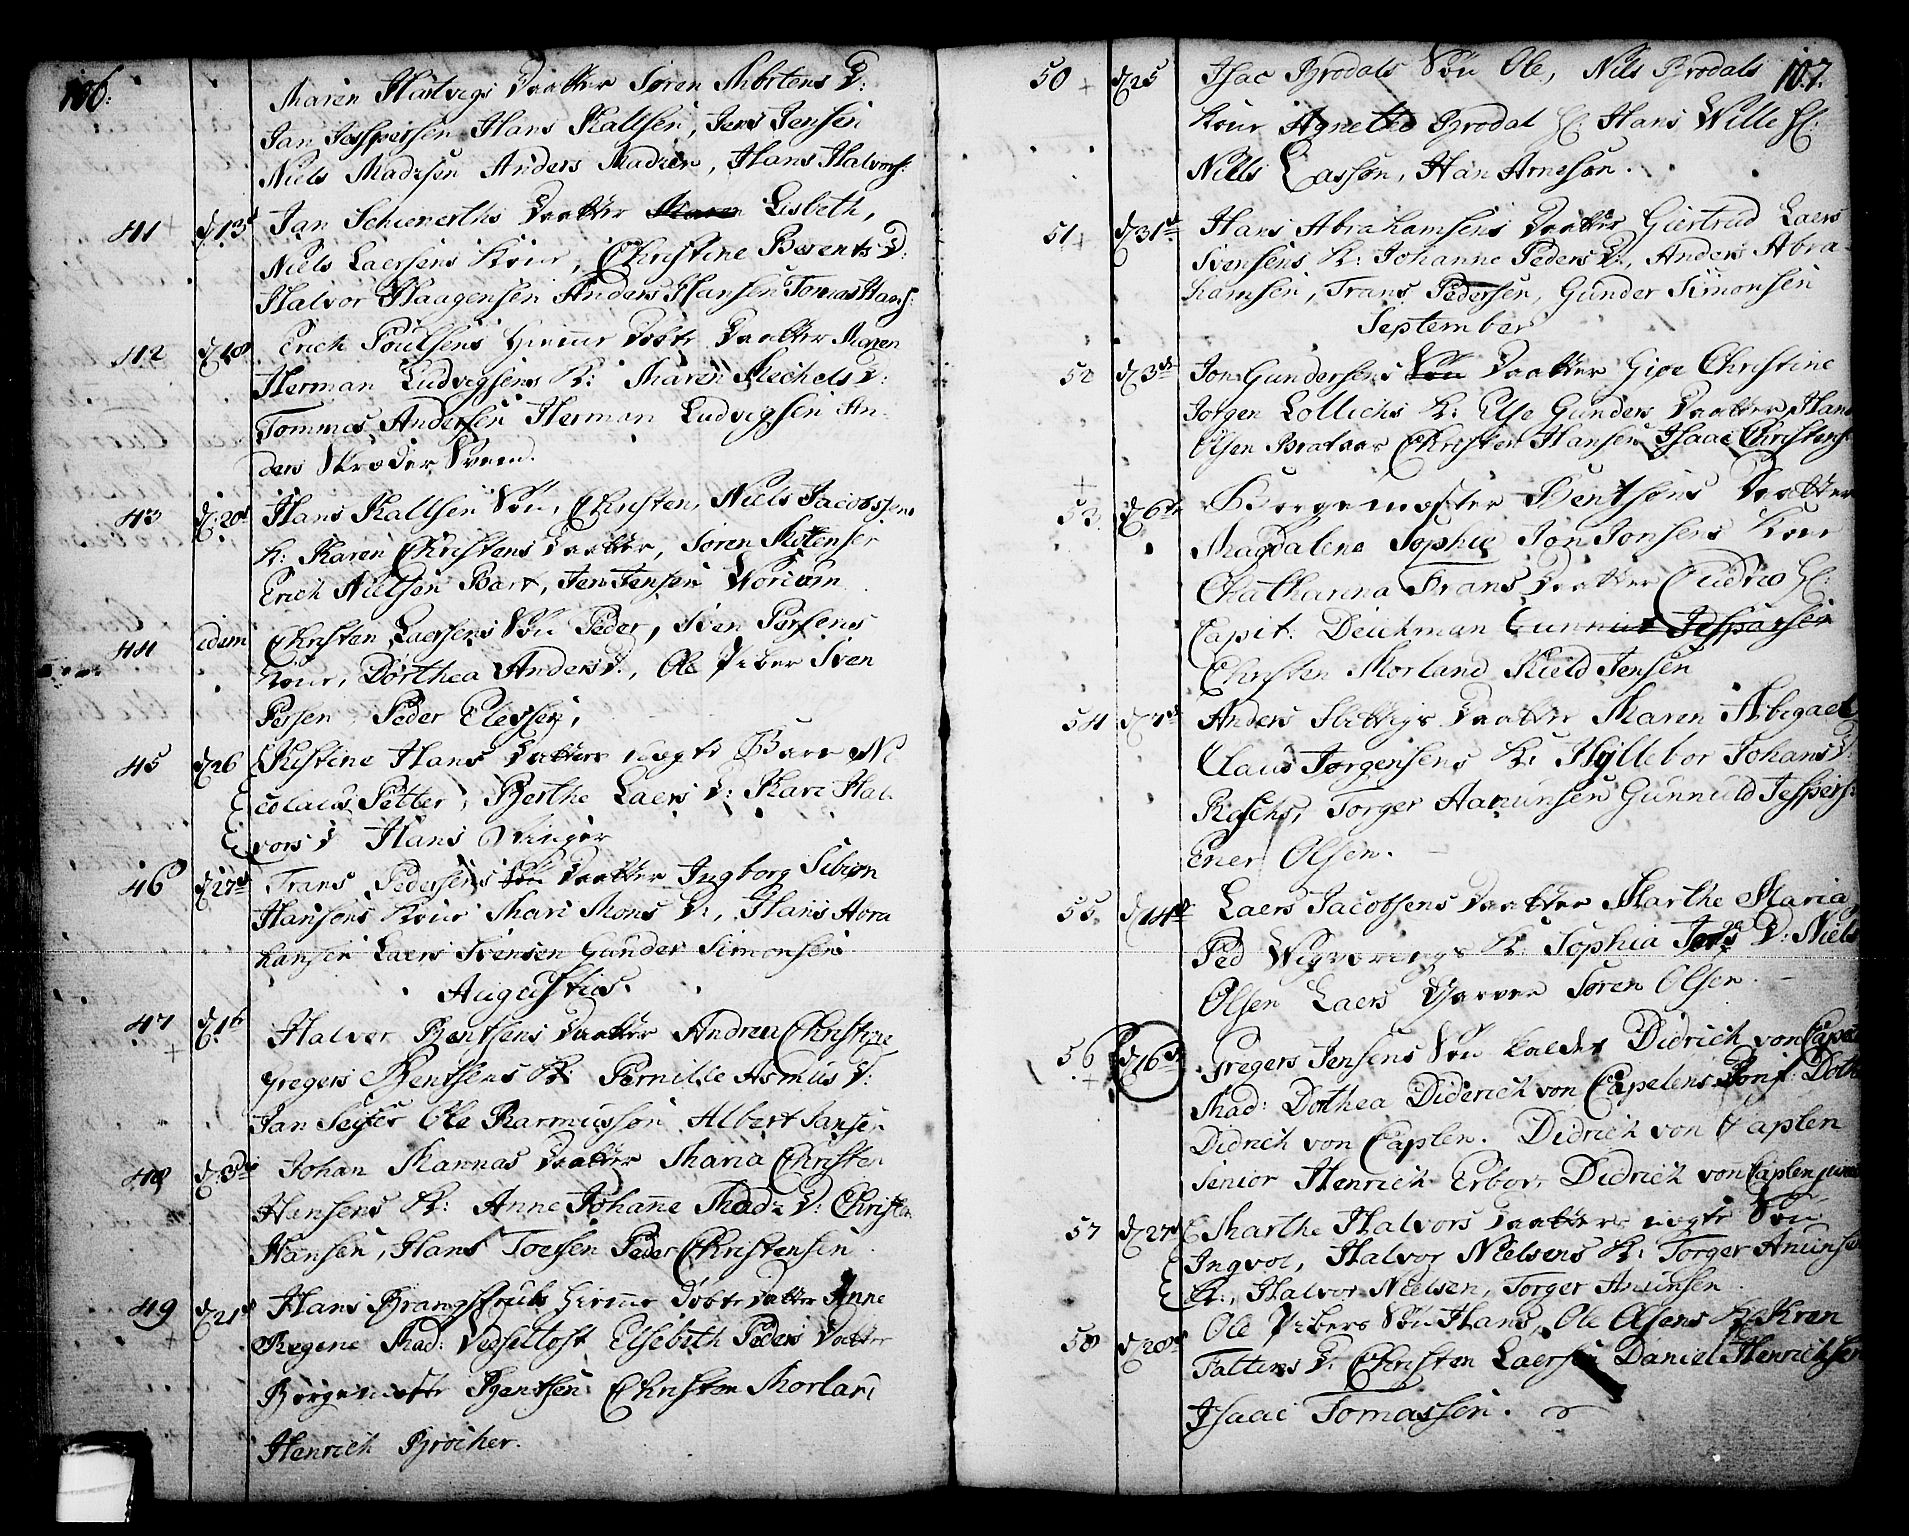 106.
Maren Hartvigs Daatter Søren Mortens D:
Jan Jespersen Hans Kallsen, Jens Jensen
Niels Madsen Anders Madsen, Hans Halvors:
41 d 13 Jan Schiwerths Daatter Maren Lisbeth,
Niels Laersens Kone, Christine Berents D:
Halvor Haagensen Anders Hansen Tomas Hans:
42 d 18 Erich Poulsens hiemme døbte Daatter Maren
Herman Ludvigsens K: Maren Michels D:
Tommes Andersen Herman Ludvigsen An-
ders Skrøder Svend.
43 d 20 Hans Kallsen Søn, Christen, Niels Jacobsens
K: Karen Christens Daatter, Søren
Erich Nielsen Bart, Jens Jensen
44 idem Christen Laersens Søn Peder, Sven Persens
Kone, Dorthea Anders D:, Ole Piber Sven
Persen, Peder Elevsen,
45 d 26 Kistine Hans Daatters uægte Barn Ni-
colaus Petter, Berthe Laers D: Kari Hal-
vors D Hans
46 d 27 Frans Pedersens Søn Daatter Ingborg Simon
Hansens Kone Mari Mons D:, Hans Abra
hansen Laers Svensen Gunder Simonsen
Augustius.
47 d 1 Halvor Bentsens Daatter Andrea Christine
Gregers Bentsens K: Pernille Asmus D:
Jan Ole Rasmussøn Albert Jansen
48 d 3 Johan Mannas Daatter Maria Christen
Hansens K: Anne Johanne Mads D: Christen
Hansen, Hans Toersen Peder Christensen
49 d 21 Hans Brangstrups hiemme døbte Datter Anne
Regine Mad: Vedseltoft Elsebeth Peders Datter
Borgemester Bentsen Christen Morland
Henrich Brøcher.
107.
50 d 25 Isac Brodals Søn Ole, Nils Brodals
Kone Agnette Brodal H: Hans Wille H:
Nills Hans Arnesøn.
51 d 31 Hans Abrahamsens Daatter Giertrud Laers
Svensens K: Johanne Peders D:, Anders Abra-
hamsen, Frans Pedersen, Gunder Simonsen
September
52 d 3 Jon Gundersens Søn Daatter Christine
Jørgen Lollichs K: Else Gunders Daatter Hans
Olsen Christen Hansen, Isaac Christens:
53 d 6te Borgemester Bentsøns Daatter
Magdalena Sophie Jon Jonsens Kone
Chatharina Frans Daatter
Capit: Deichman Gunnuld Jespersen
Christen Morland Kield Jensen
54 d 7 Anders Daatter Maren Abigael
Claus Jørgensens K: Hyllebor Johans D:
Torger Aanunsen Gunnuld Jespers:
Ener Olsen.
55 d 14 Laers Jacobsens Daatter Marthe Maria,
Ped K: Sophia D: Niels
Olsen Laers Søren Olsen.
56 d 16 Gregers Jensens Søn kaldes Didrich von Capelen
Mad: Dothea Diderich von Capelens Jonf: Doth
Didrich von Caplen. Didrich von Caplen
Senior Henrich Didrich von Caplen junior
57 d 27 Marthe Halvors Daatters uægte Søn
Ingvol, Halvor Nielsens K: Torger Anunsens
K:, Halvor Nielsen, Torger Anunsen
58 d 28 Ole Pibers Søn Hans, Ole Olsens K: Kren
D: Christen Laersen Daniel Henrichsen
Isaac Tomassen.